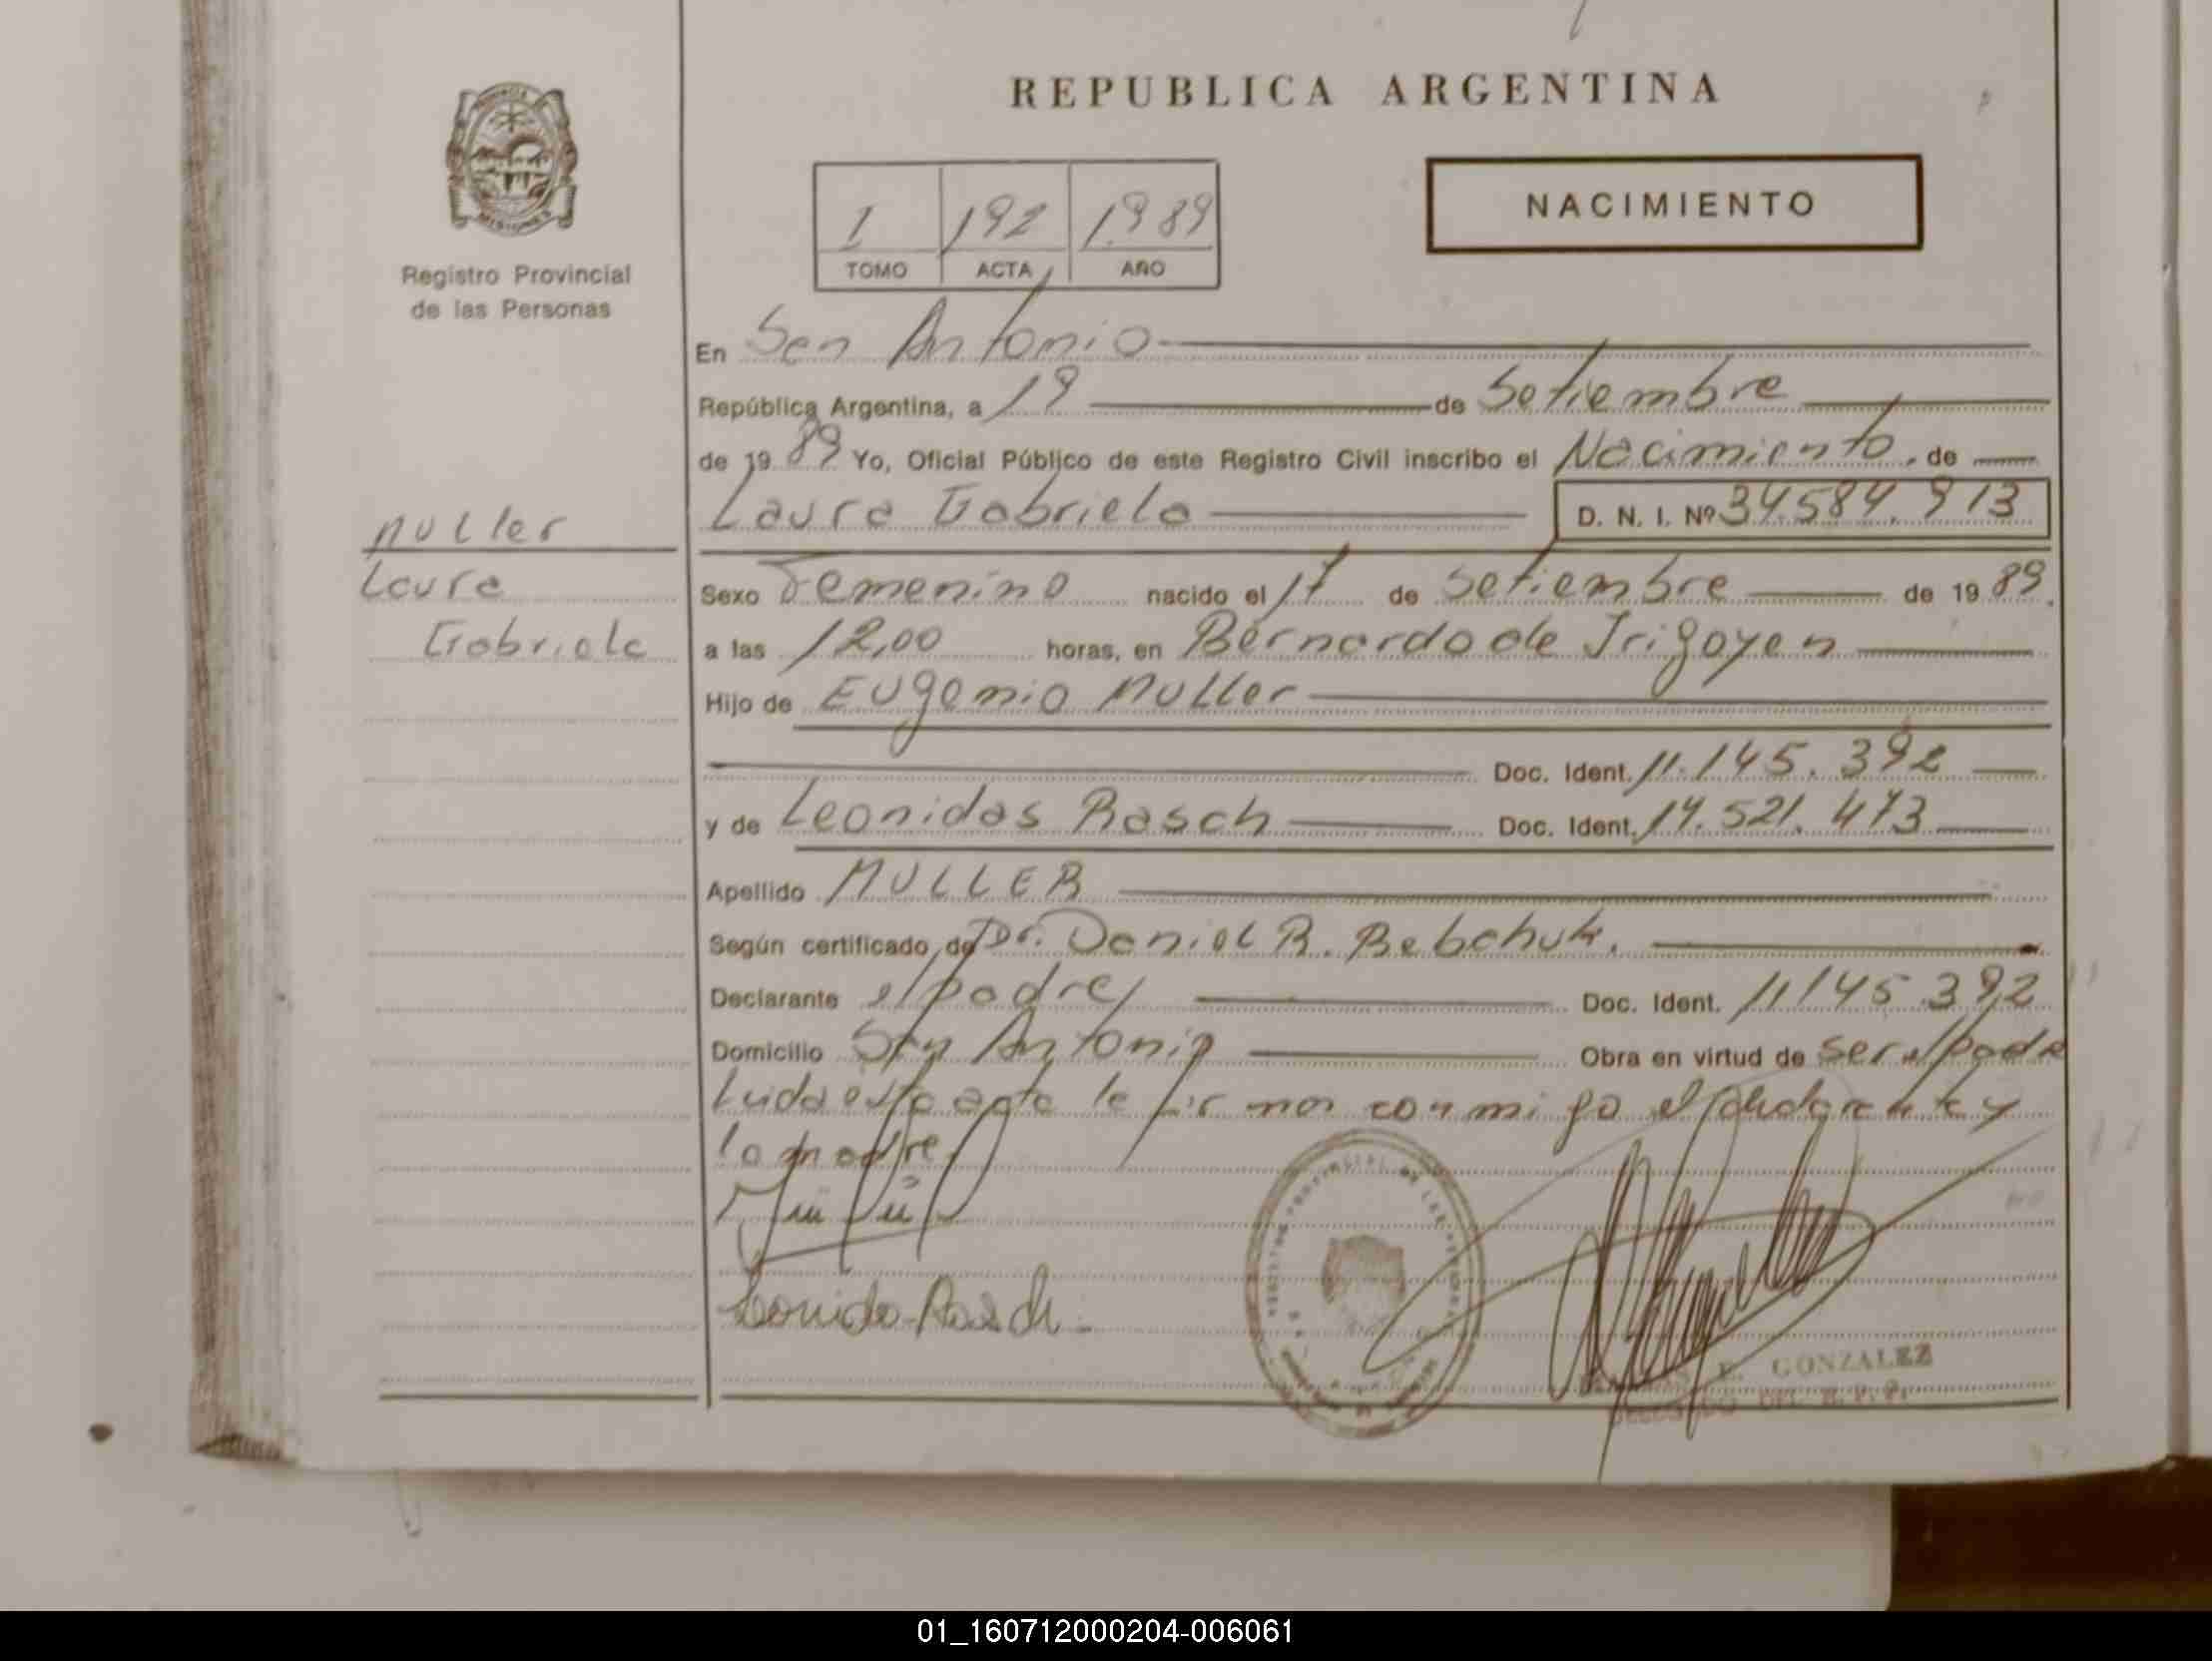 REPUBLICA ARGENTINA
NACIMIENTO
1 192 1989
TOMO ACTA AÑO
Registro Provincial
de las Personas
En San Antonio
República Argentina, a 19 de Setiembre
de 19 89 Yo, Oficial Público de este Registro Civil inscribo el Nacimiento, de
Laura Gabriela D. N. I. Nº 34.584.913
Muller
Laura
Gabriela
Sexo Femenino nacido el 17 de Setiembre de 19 89.
a las 12,00 horas, en Bernardo de Irigoyen
Hijo de Eugenio Muller
Doc. Ident. 11.145.392
y de Leonidas Rasch Doc. Ident. 14.521.473
Apellido MULLER
Según certificado de Dr. Daniel R. Bebchuk.
Declarante el padre Doc. Ident. 11.145.392
Domicilio San Antonio Obra en virtud de ser el padre
Leida esta acta la firman conmigo el declarante y
la madre.
Leonida Rasch
E. GONZALEZ
DELEGADO DEL R. P. P.
01_160712000204-006061